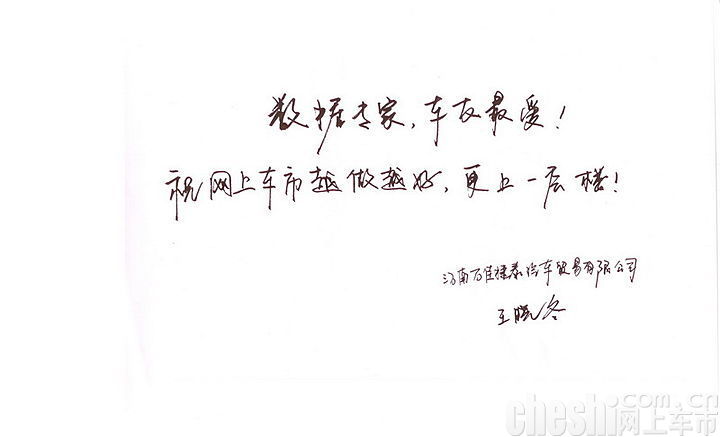 数据专家,车友最爱!
祝网上车市越做越好,更上一层楼!
河南万佳捷泰汽车贸易有限公司
王晓冬
cheshi.com.cn
网上车市